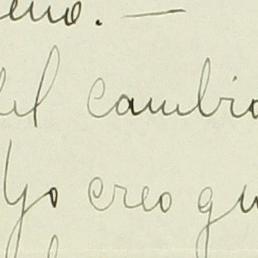 eno. —
del cambio
Yo creo qu